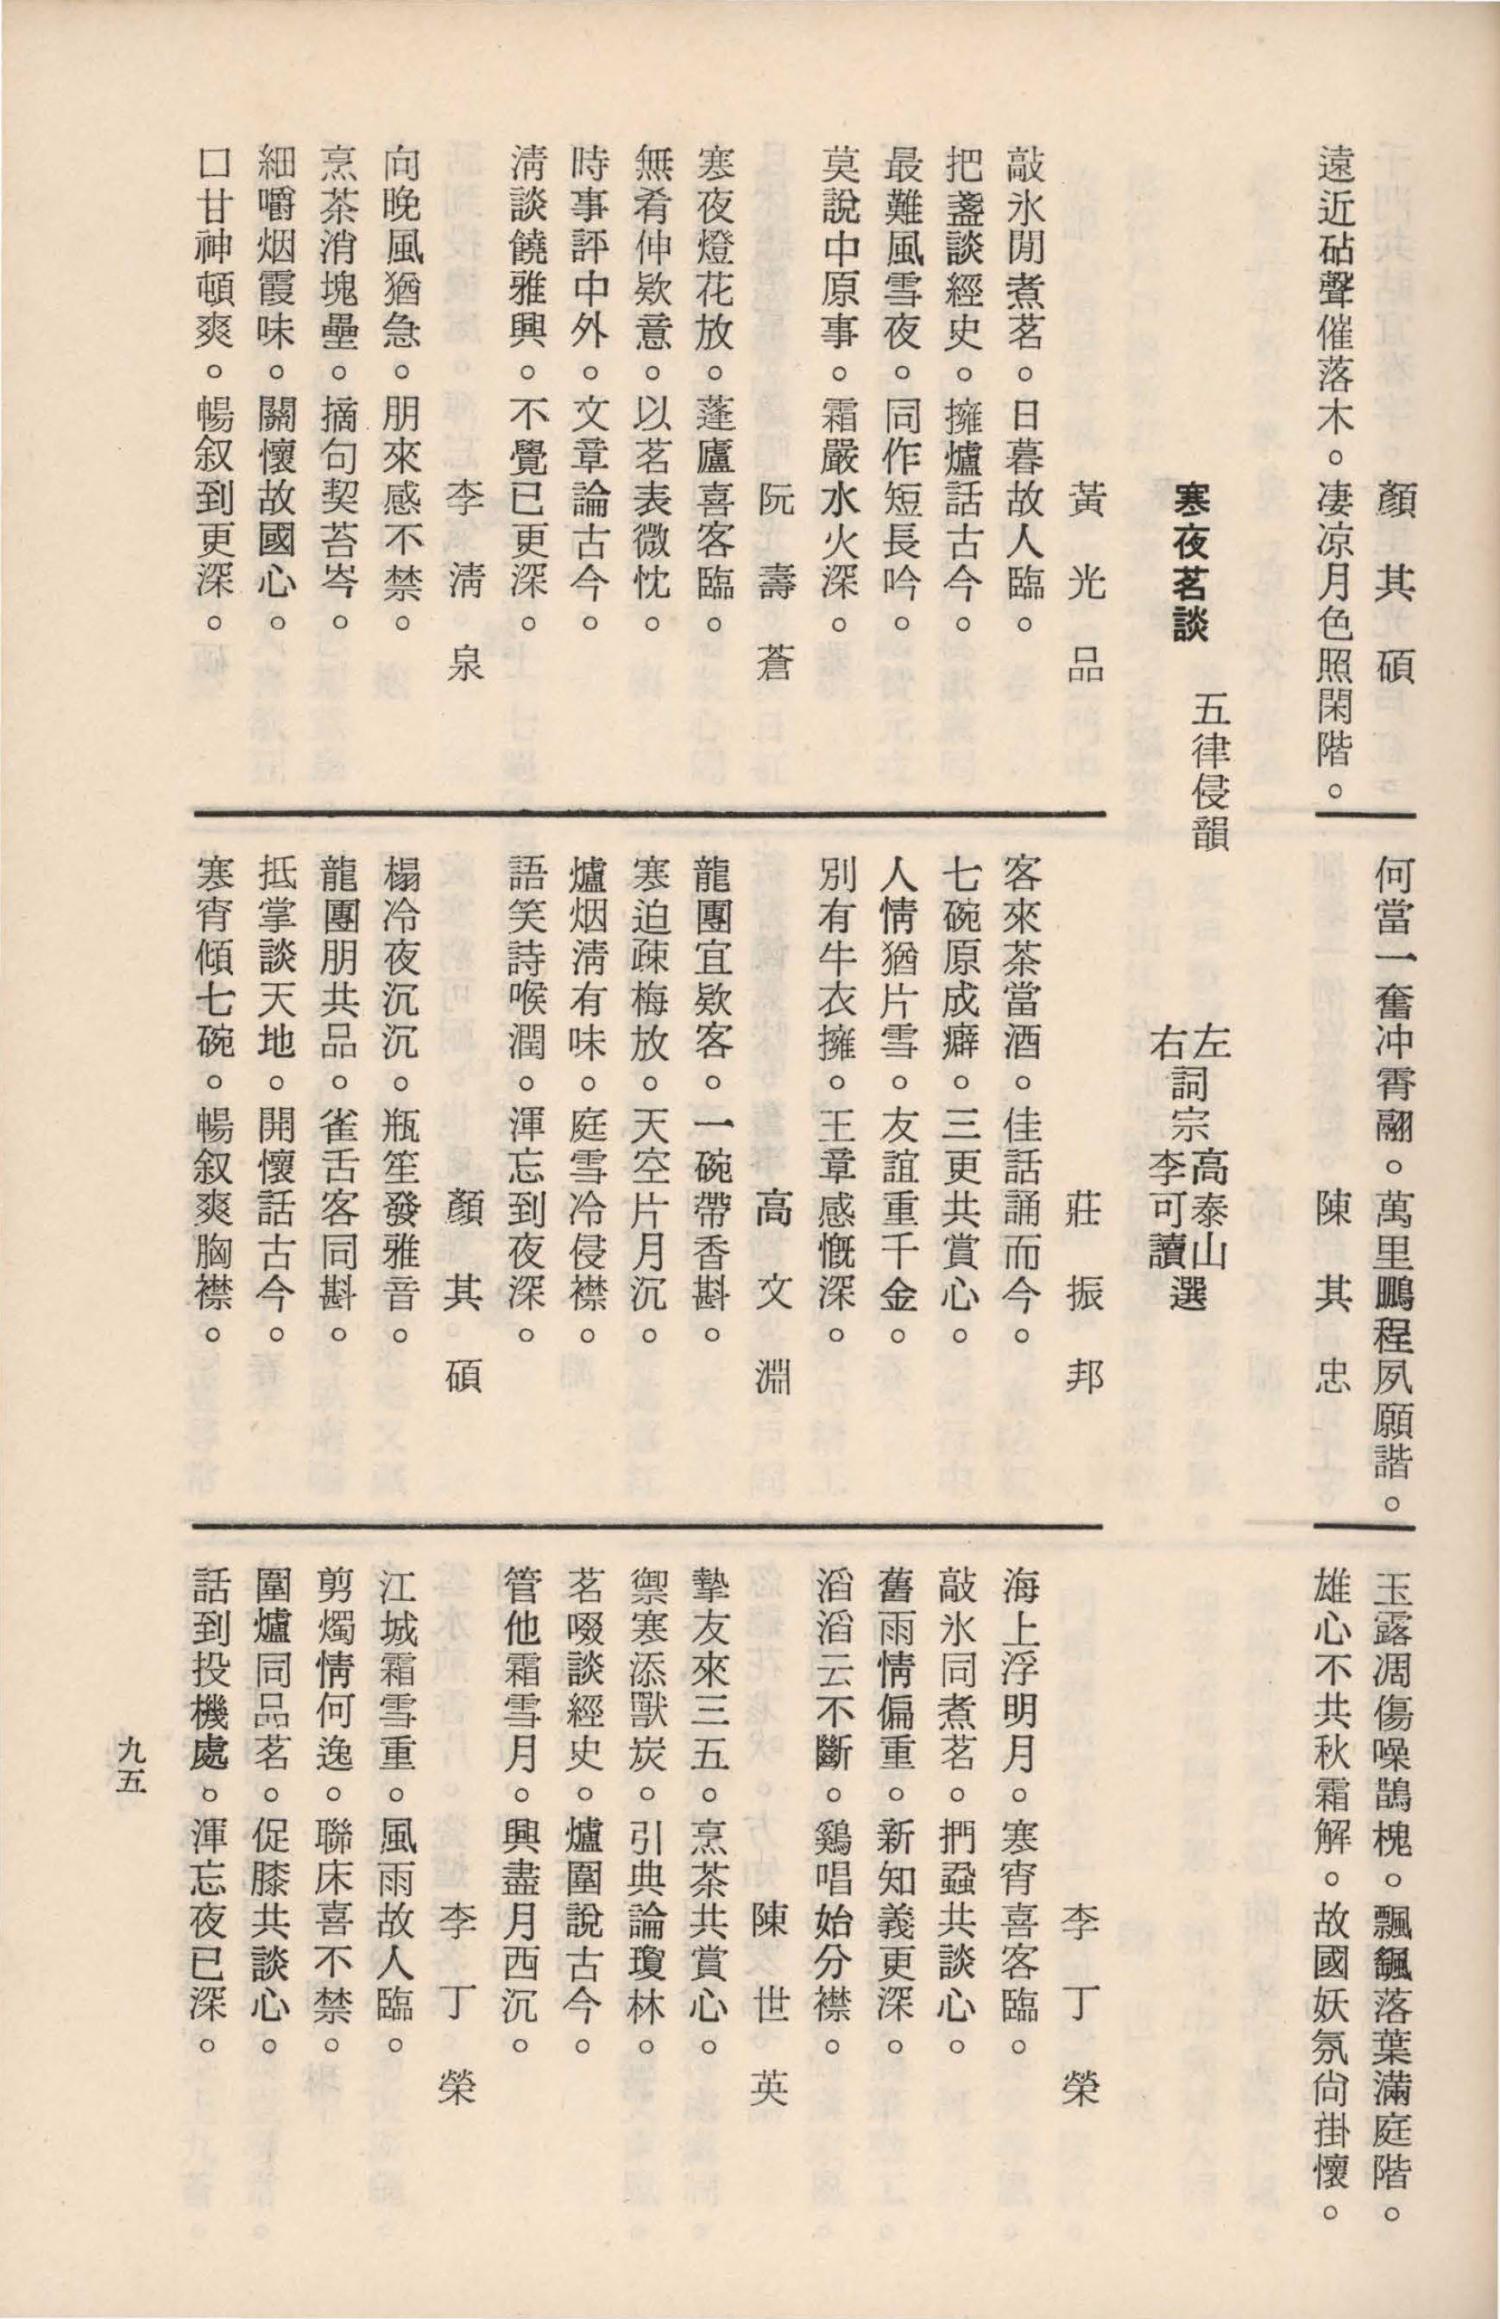 顏其碩
遠近砧聲催落木。凄涼月色照閑階。
何當一奮冲霄翮。萬里鵬程夙願諧。
陳其忠
玉露凋傷噪鵲槐。飄飄落葉滿庭階。
雄心不共秋霜解。故國妖氛尙掛懷。
寒夜茗談 五律侵韻
左詞宗高泰山選
右詞宗李可讀選
黃光品
敲氷閒煮茗。日暮故人臨。
把盞談經史。擁爐話古今。
最難風雪夜。同作短長吟。
莫說中原事。霜嚴水火深。
阮壽蒼
寒夜燈花放。蓬廬喜客臨。
無肴伸欵意。以茗表微忱。
時事評中外。文章論古今。
淸談饒雅興。不覺已更深。
李淸泉
向晚風猶急。朋來感不禁。
烹茶消塊壘。摘句契苔岑。
細嚼烟霞味。關懷故國心。
口甘神頓爽。暢叙到更深。
莊振邦
客來茶當酒。佳話誦而今。
七碗原成癖。三更共賞心。
人情猶片雪。友誼重千金。
別有牛衣擁。王章感慨深。
高文淵
龍團宜欵客。一碗帶香斟。
寒迫疎梅放。天空片月沉。
爐烟淸有味。庭雪冷侵襟。
語笑詩喉潤。渾忘到夜深。
顏其碩
榻冷夜沉沉。瓶笙發雅音。
龍團朋共品。雀舌客同斟。
抵掌談天地。開懷話古今。
寒宵傾七碗。暢叙爽胸襟。
李丁榮
海上浮明月。寒宵喜客臨。
敲氷同煮茗。捫蝨共談心。
舊雨情偏重。新知義更深。
滔滔云不斷。鷄唱始分襟。
陳世英
摯友來三五。烹茶共賞心。
禦寒添獸炭。引典論瓊林。
茗啜談經史。爐圍說古今。
管他霜雪月。興盡月西沉。
李丁榮
江城霜雪重。風雨故人臨。
剪燭情何逸。聯床喜不禁。
圍爐同品茗。促膝共談心。
話到投機處。渾忘夜已深。
九五